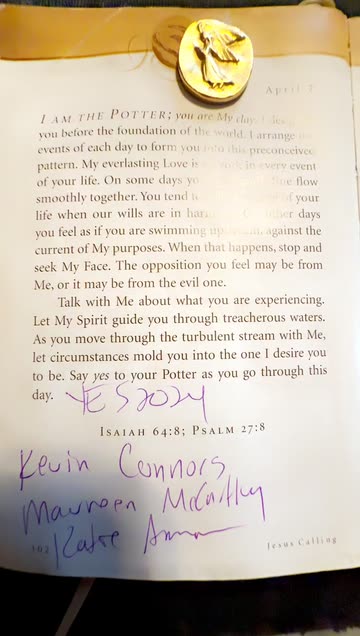 April 7
I AM THE POTTER; you are My clay. I
you before the foundation of the world. I arrange
events of each day to form you into this preconceived
pattern. My everlasting Love is at work in every event
of your life. On some days your flow
smoothly together. You tend of your
life when our wills are in On other days
you feel as if you are swimming against the
current of My purposes. When that happens, stop and
seek My Face. The opposition you feel may be from
Me, or it may be from the evil one.
Talk with Me about what you are experiencing.
Let My Spirit guide you through treacherous waters.
As you move through the turbulent stream with Me,
let circumstances mold you into the one I desire you
to be. Say yes to your Potter as you go through this
day. YES 2024
ISAIAH 64:8; PSALM 27:8
Kevin Connors
Maureen McCarthy
Katie
102 Jesus Calling